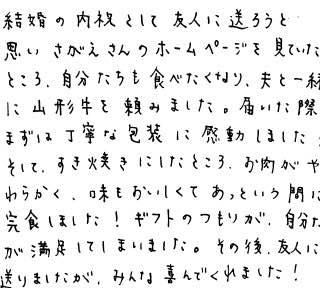 結婚の内祝として友人に送ろうと
思いさがえさんのホームページを見ていた
ところ、自分たちも食べたくなり、夫と一緒
に山形牛を頼みました。届いた際
まずは丁寧な包装に感動しました。
そして、すき焼きにしたところ、お肉がや
わらかく、味もおいしくてあっという間に
完食しました！ギフトのつもりが、自分た
が満足してしまいました。その後、友人に
送りましたが、みんな喜んでくれました！